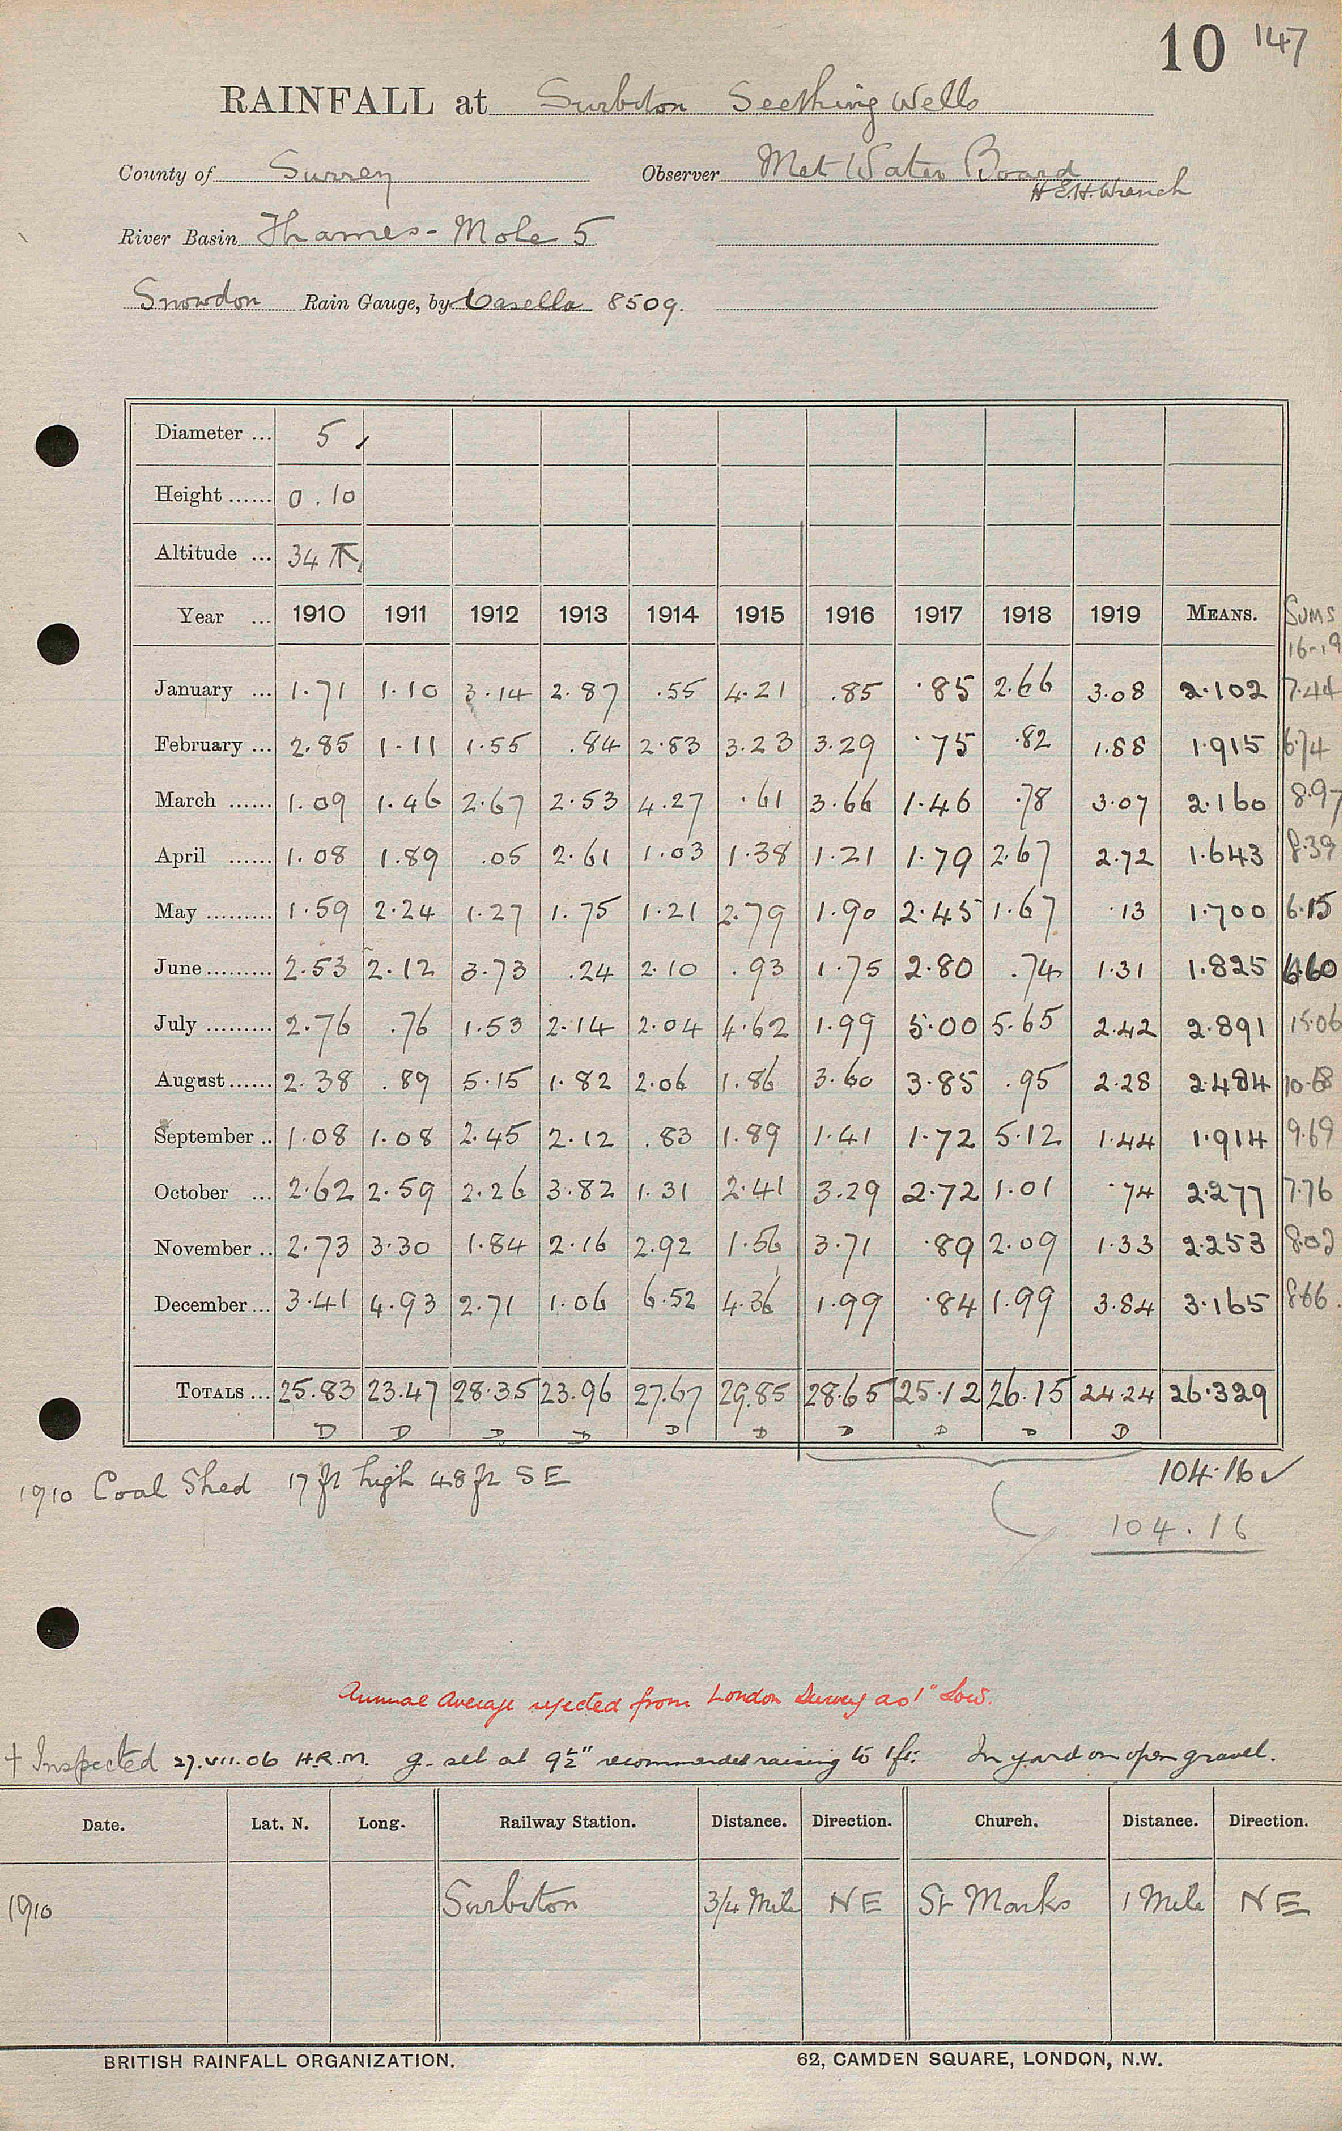 10 147
RAINFALL at Surbiton Seething Wells
County of Surrey Observer Met Water Board
H E.H. Wrench
River Basin Thames - Mole 5
Snowdon Rain Gauge, by Casella 8509.
Diameter ... 5
Height ...... 0.10
Altitude ... 34
Year ... 1910 1911 1912 1913 1914 1915 1916 1917 1918 1919 MEANS. Sums 16-19
January ... 1.71 1.10 3.14 2.87 .55 4.21 .85 .85 2.66 3.08 2.102 7.44
February ... 2.85 1.11 1.55 .84 2.83 3.23 3.29 .75 .82 1.88 1.915 6.74
March ...... 1.09 1.46 2.67 2.53 4.27 .61 3.66 1.46 .78 3.07 2.160 8.97
April ...... 1.08 1.89 .05 2.61 1.03 1.38 1.21 1.79 2.67 2.72 1.643 8.39
May ......... 1.59 2.24 1.27 1.75 1.21 2.79 1.90 2.45 1.67 .13 1.700 6.15
June ......... 2.53 2.12 3.73 .24 2.10 .93 1.75 2.80 .74 1.31 1.825 6.60
July ......... 2.76 .76 1.53 2.14 2.04 4.62 1.99 5.00 5.65 2.42 2.891 15.06
August ...... 2.38 .89 5.15 1.82 2.06 1.86 3.60 3.85 .95 2.28 2.484 10.68
September .. 1.08 1.08 2.45 2.12 .83 1.89 1.41 1.72 5.12 1.44 1.914 9.69
October ... 2.62 2.59 2.26 3.82 1.31 2.41 3.29 2.72 1.01 .74 2.277 7.76
November .. 2.73 3.30 1.84 2.16 2.92 1.56 3.71 .89 2.09 1.33 2.253 8.02
December ... 3.41 4.93 2.71 1.06 6.52 4.36 1.99 .84 1.99 3.84 3.165 8.66
TOTALS ... 25.83 23.47 28.35 23.96 27.67 29.85 28.65 25.12 26.15 24.24 26.329
D D D D D D D D D D
1910 Coal Shed 17 ft high 48 ft SE 104.16 ✓
104.16
Annual Average rejected from London Survey as 1" Low.
† Inspected 27.VII.06 H.R.M. g. set at 9½" recommended raising to 1ft: In yard on open gravel.
Date. Lat. N. Long. Railway Station. Distance. Direction. Church. Distance. Direction.
1910 Surbiton 3/4 Mile NE St Marks 1 Mile NE
BRITISH RAINFALL ORGANIZATION. 62, CAMDEN SQUARE, LONDON, N.W.